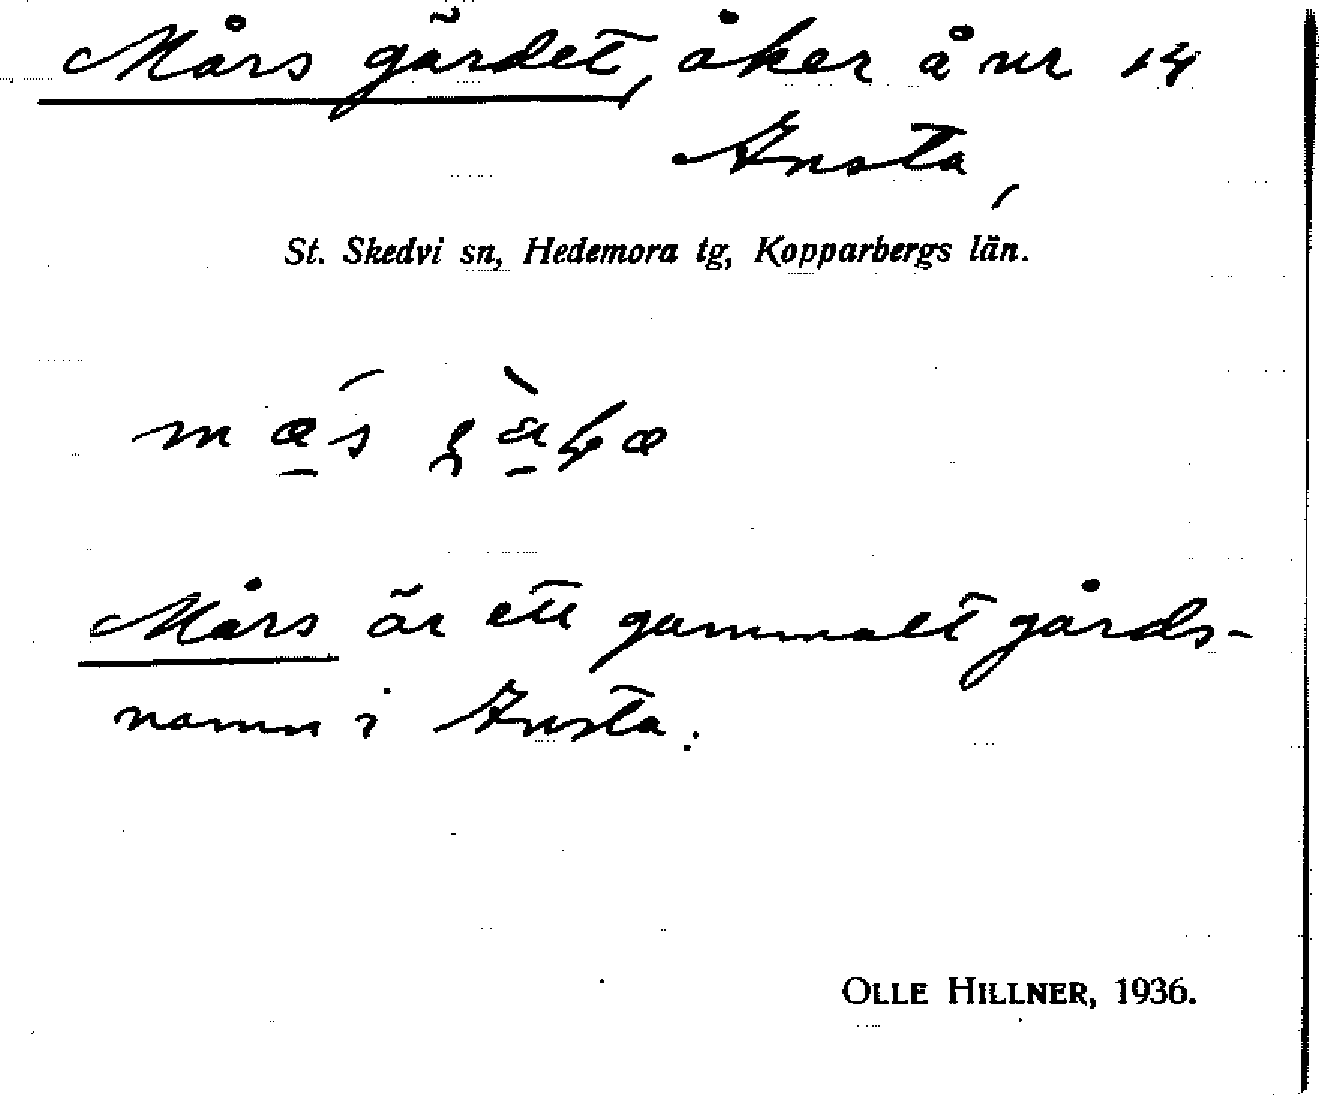 Mårs gärdet, åker å nr 14
Ansta,
St. Skedvi sn, Hedemora tg, Kopparbergs län.
Mårs är ett gammalt gårds-
namn i Ansta.
OLLE HILLNER, 1936.